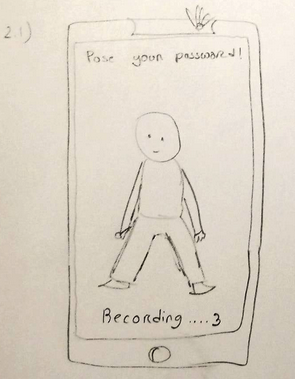 2.1)
Pose your password!
Recording....3